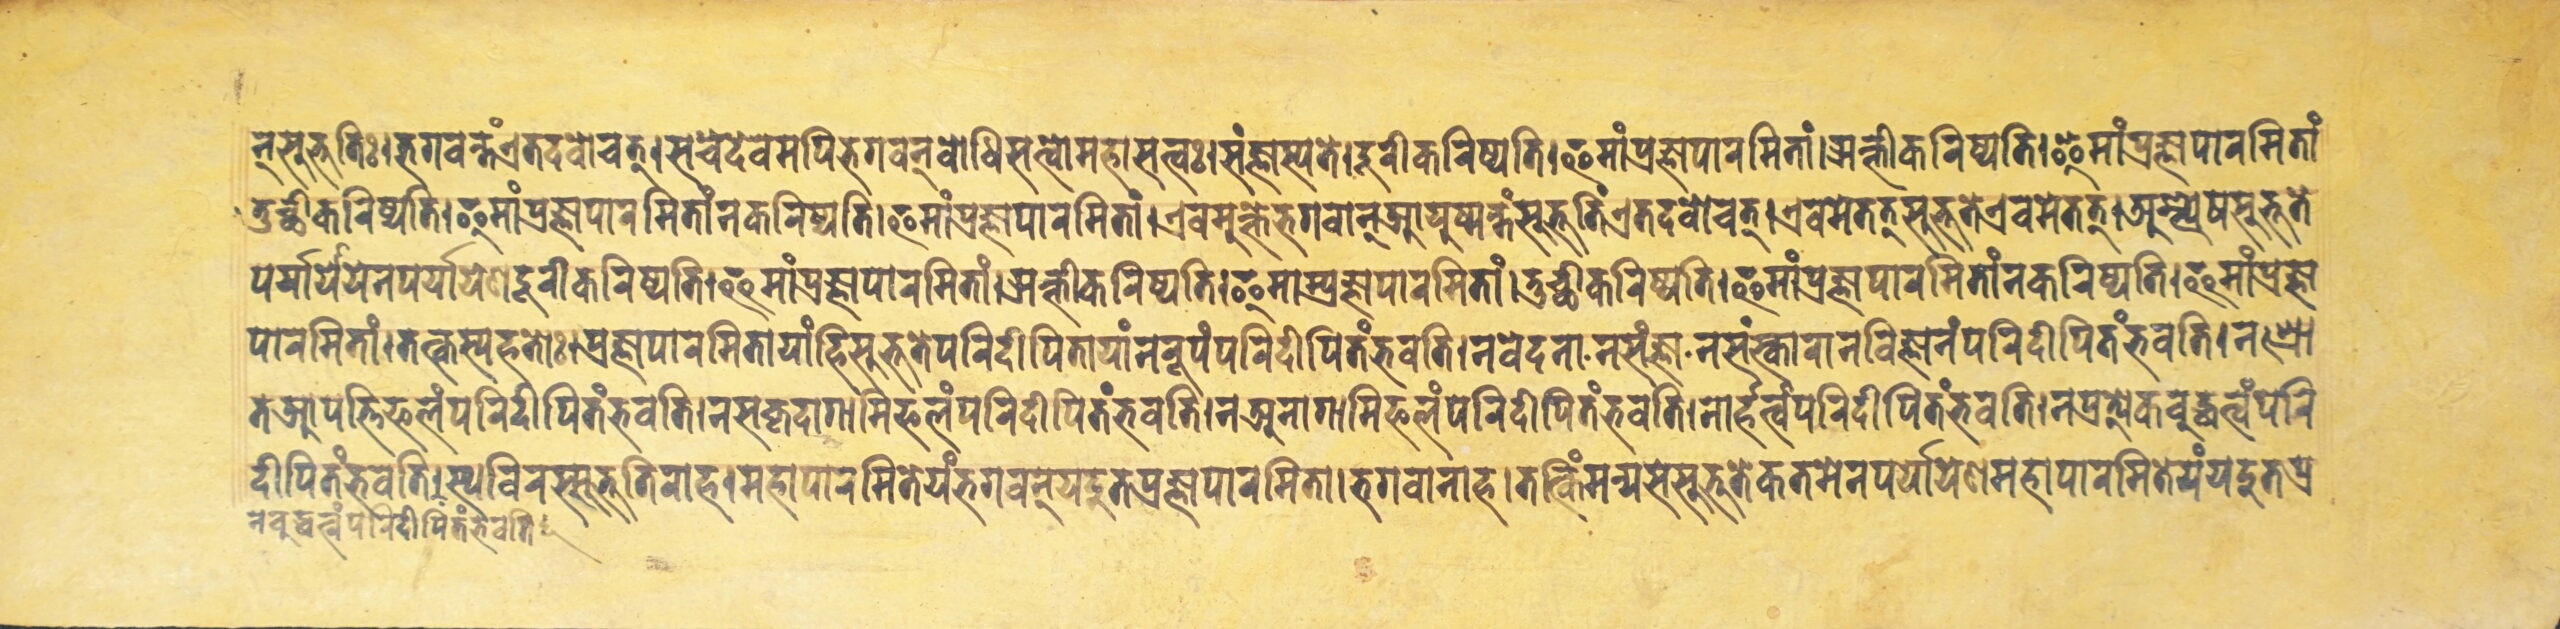 न्सुभूतिः।भगवन्तंएतदवोचत्।सचेदेवमपिभगवन्बोधिसत्वोमहासत्वः।संज्ञास्यते।दूरीकरिष्यति।इमांप्रज्ञापारमितां।ञत्क्तीकरिष्यति।इमांप्रज्ञापारमितां
तुच्छीकरिष्यति।इमांप्रज्ञापारमितांनकरिष्यति।इमांप्रज्ञापारमितां।एवमुक्तेभगवान्आयुष्मन्तंसुभूतिंएतदवोचत्।एवमेतत्सुभूतेएवमेतत्।अस्त्येषसुभूते
पर्यायेयेनपर्यायेणदूरीकरिष्यति।इमांप्रज्ञापारमितां।रिक्तीकरिष्यति।इमाम्प्रज्ञापारमितां।तुच्छीकरिष्यति।इमांप्रज्ञापारमितांनकरिष्यति।इमांप्रज्ञा
पारमितां।तत्कस्यहतोः।प्रज्ञापारमितायांहिसुभूतेपरिदीपितायांनरूपंपरिदीपितंभवति।नवेदना·नसंज्ञा·नसंस्कारानविज्ञानंपरिदीपितंभवति।नश्रो
तआपत्तिफलंपरिदीपितंभवति।नसकृदागामिफलंपरिदीपितंभवति।नअनागामिफलंपरिदीपितंभवति।नार्हत्त्वंपरिदीपितंभवति।नप्रत्येकबुद्धत्वंपरि
दीपितंभवति।स्थविरस्सुभूतिराह।महापारमितेयंभगवन्यदुतप्रज्ञापारमिता।भगवानाह।तत्किंमन्यसेसुभूतेकतमेनपर्यायेणमहापारमितेयंयदुतप्र
नबुद्धत्वंपरिदीपितंभवति